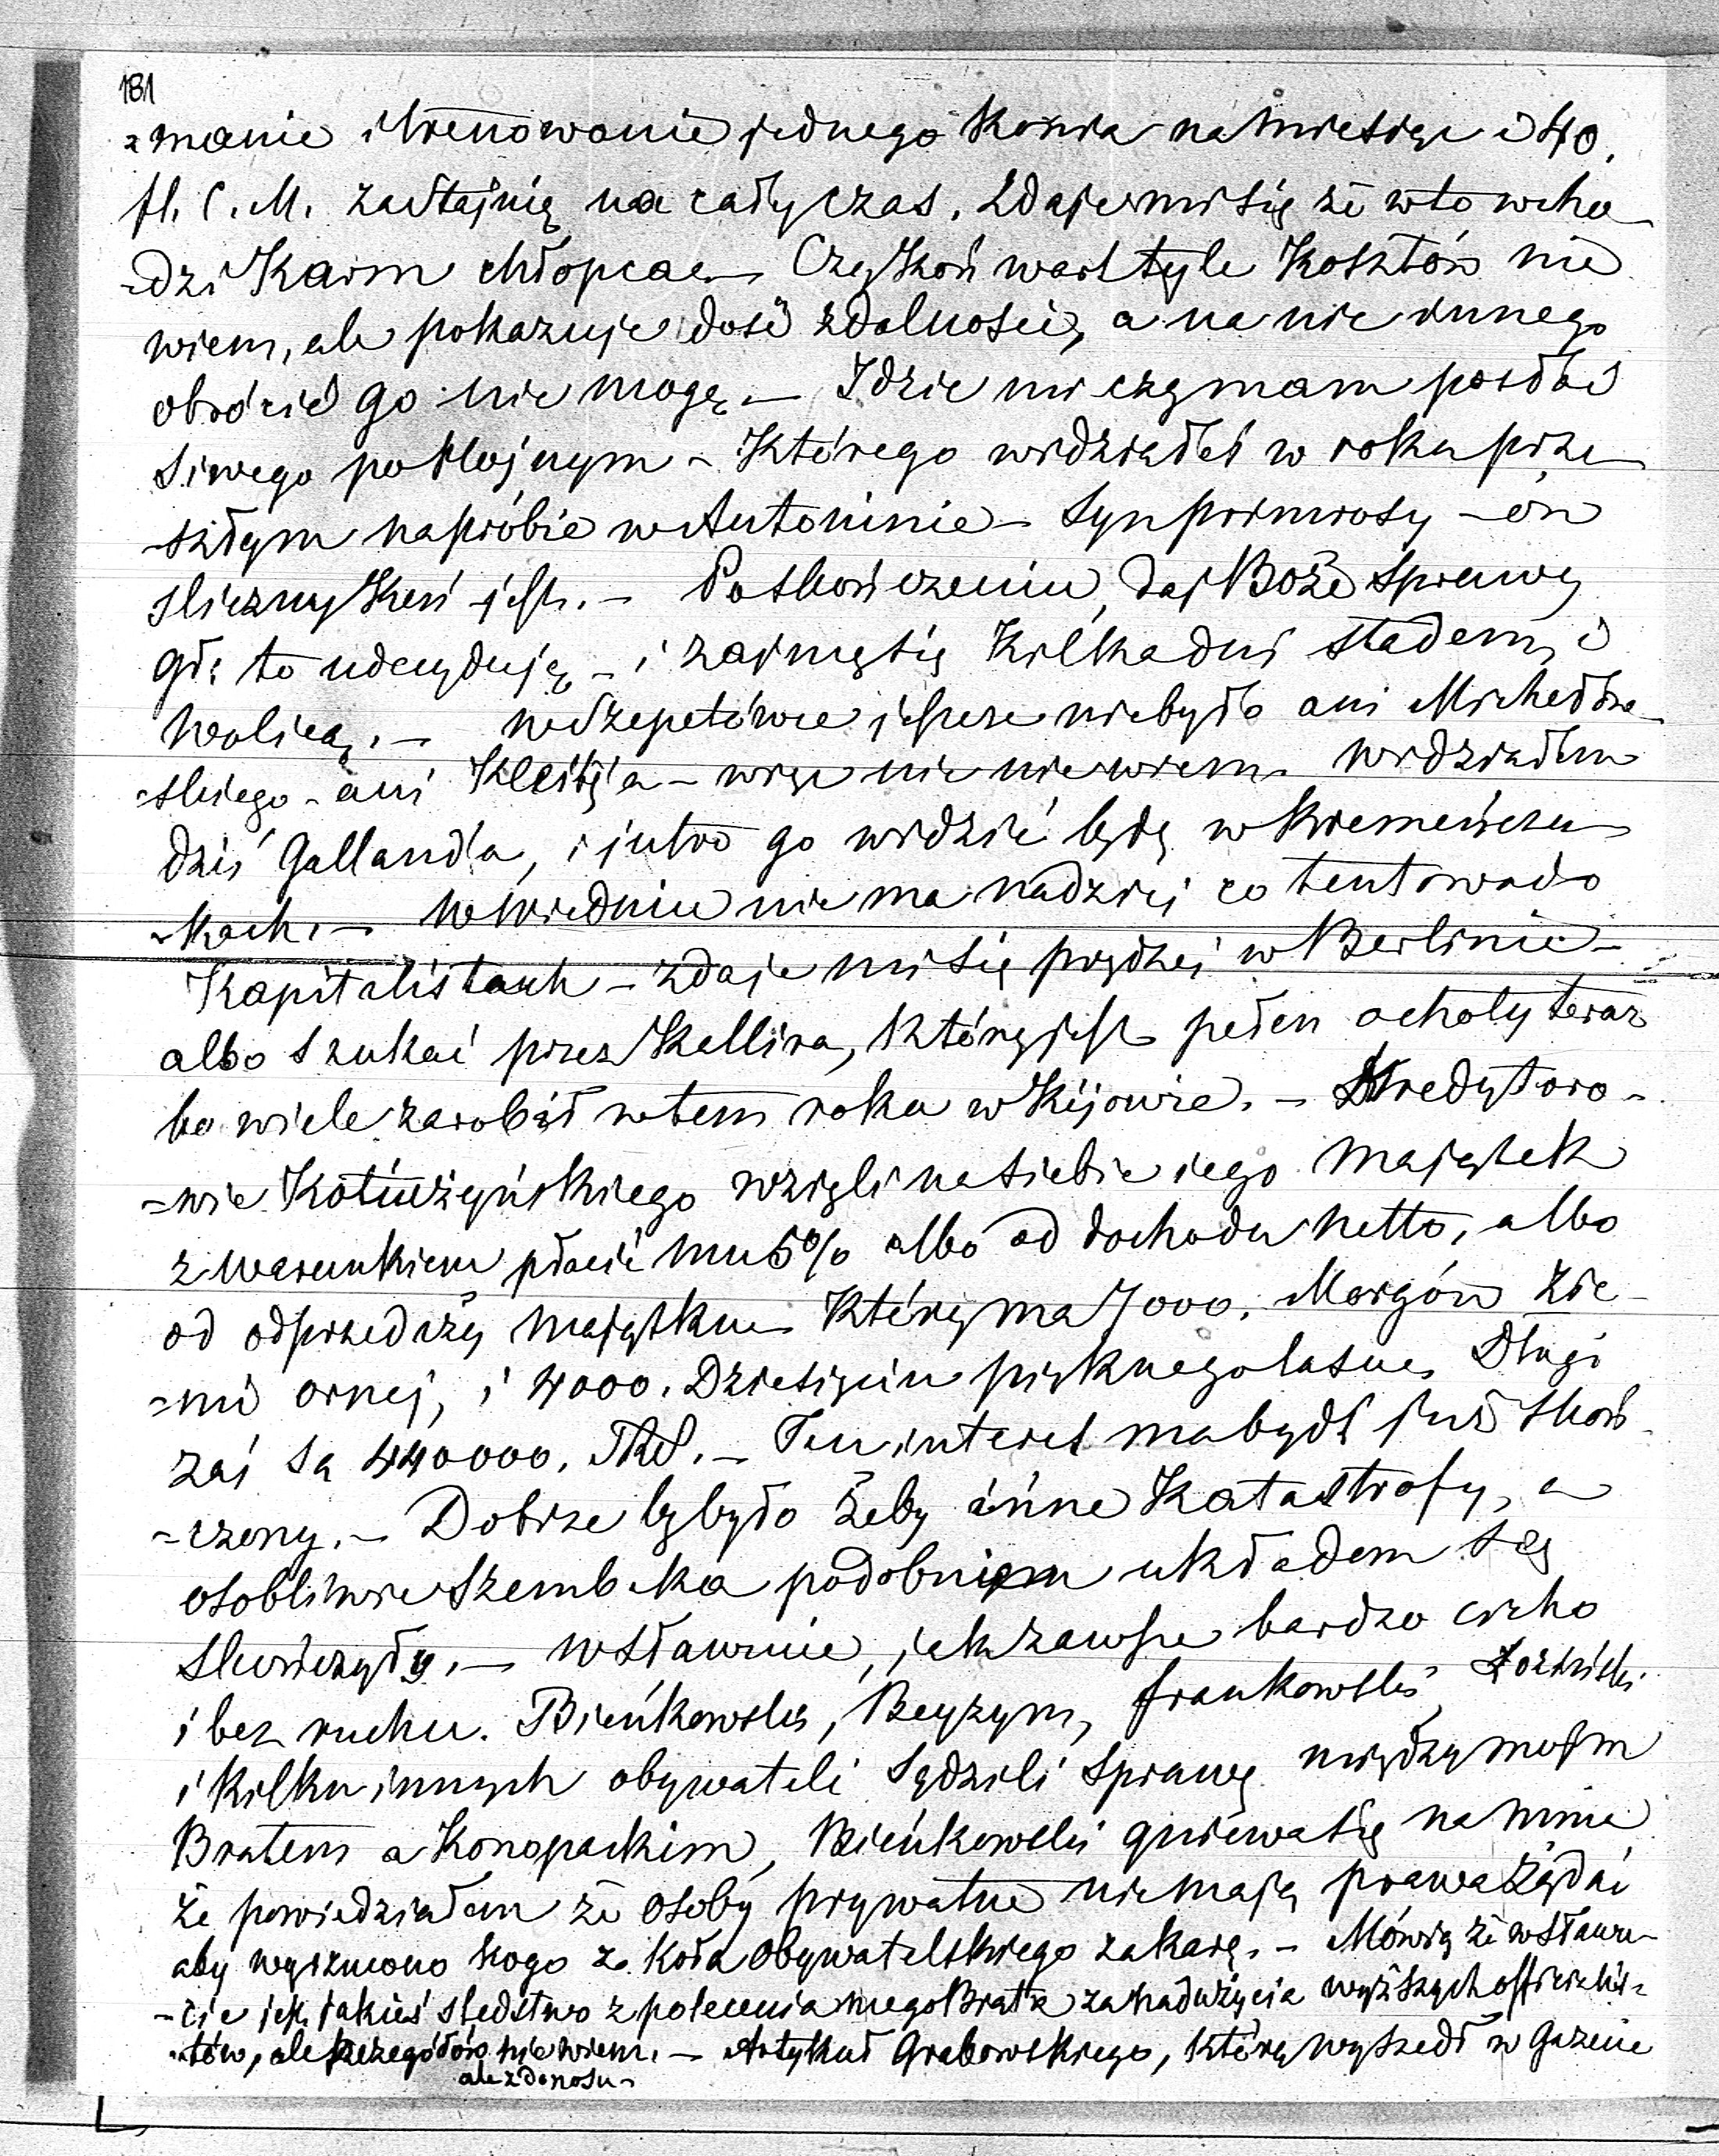 181
=manie i trenowanie jednego Konia na miesiąc i 40.
fl. C. M. za stajnią na cały czas. Zdaje mi się że w to wcho
=dzi Karm chłopca — Czy Koń wart tyle Kosztów nie
wiem, ale pokazuje dość zdolności, a na nic innego
obrócić go nie mogę — Idzie mi czy mam posłać
Siwego po Hojnym — Którego widziałeś w roku prze
-szłym na próbie w Antoninie — Syn — on
śliczny Koń jest. — Po skończeniu, daj Boże sprawy
gł: to udecyduję — i zajmę się Kilka dni stadem, i
Wolicą. — w Szepetówce jeszcze nie było ani Michałow
-skiego — ani — więc nic nie wiem. Widziałem
dziś Gallanda, i jutro go widzić będę w Krzemieńczu
-kach. — W Wiedniu nie ma nadziei co tentowało
Kapitalistach — zdaje mi się prędzej w Berlinie —
albo szukać przez Kellera, który jest pełen ochoty teraz
bo wiele zarobił w tem roku w Kijowie. — Kredytoro-
=wie Kotiużyńskiego wzięli na siebie iego majątek
z warunkiem płacić mu 5% albo od dochodu netto, albo
od odprzedaży majątku — Który ma 7000. Morgów zie-
=mi ornej, i 4000. Dziesięcin pięknego lasu. Długi
zaś są 440000. RS. — Ten interes ma bydź już skoń-
=czony. — Dobrze by było żeby inne Katastrofy, a
osobliwie Szembeka podobnym układem się
skończyły. — w Sławucie, jak zawsze bardzo cicho
i bez ruchu. Bieńkowski, Beyzym, Frankowski,
i kilku innych obywateli sądzili sprawę między moim
Bratem a Konopackim, Bieńkowski gniewa się na mnie
że powiedziałem że osoby prywatne nie mają prawa żądać
aby wyrzucono kogo z Koła obywatelskiego za karę. — Mówią że w Sławu-
-cie jest jakieś śledstwo z polecenia mego Brata za nadużycia wyższych officialis-
-tów, ale szczegółów nie wiem. — Artykuł Grabowskiego, który wyszedł w Gazecie
ale z donosu —